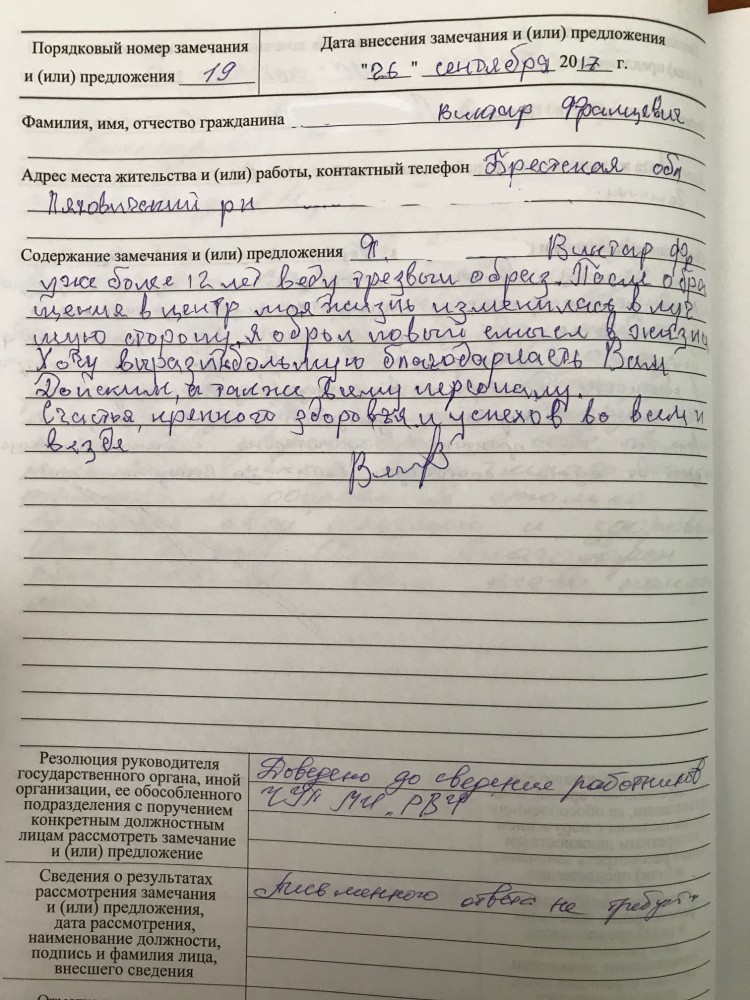 Порядковый номер замечания
и (или) предложения 19
Дата внесения замечания и (или) предложения
"26" сентября 2017 г.
Фамилия, имя, отчество гражданина Виктар Францевич
Адрес места жительства и (или) работы, контактный телефон Брестская обл
Ляховичский рн
Содержание замечания и (или) предложения Я, Виктар Фр
уже более 12 лет веду трезвый образ. После обра
щения в центр моя жизнь изменилась в луч
шую сторону, я обрёл новый смысл в жизни
Хочу выразить большую благодарнасть Вам
а также Всему персоналу.
Счастья, крепкого здоровья и успехов во всем и
везде
Резолюция руководителя
государственного органа, иной
организации, ее обособленного
подразделения с поручением
конкретным должностным
лицам рассмотреть замечание
и (или) предложение
Доведено до сведения работников
ЧУП
Сведения о результатах
рассмотрения замечания
и (или) предложения,
дата рассмотрения,
наименование должности,
подпись и фамилия лица,
внесшего сведения
Письменного ответа не требует